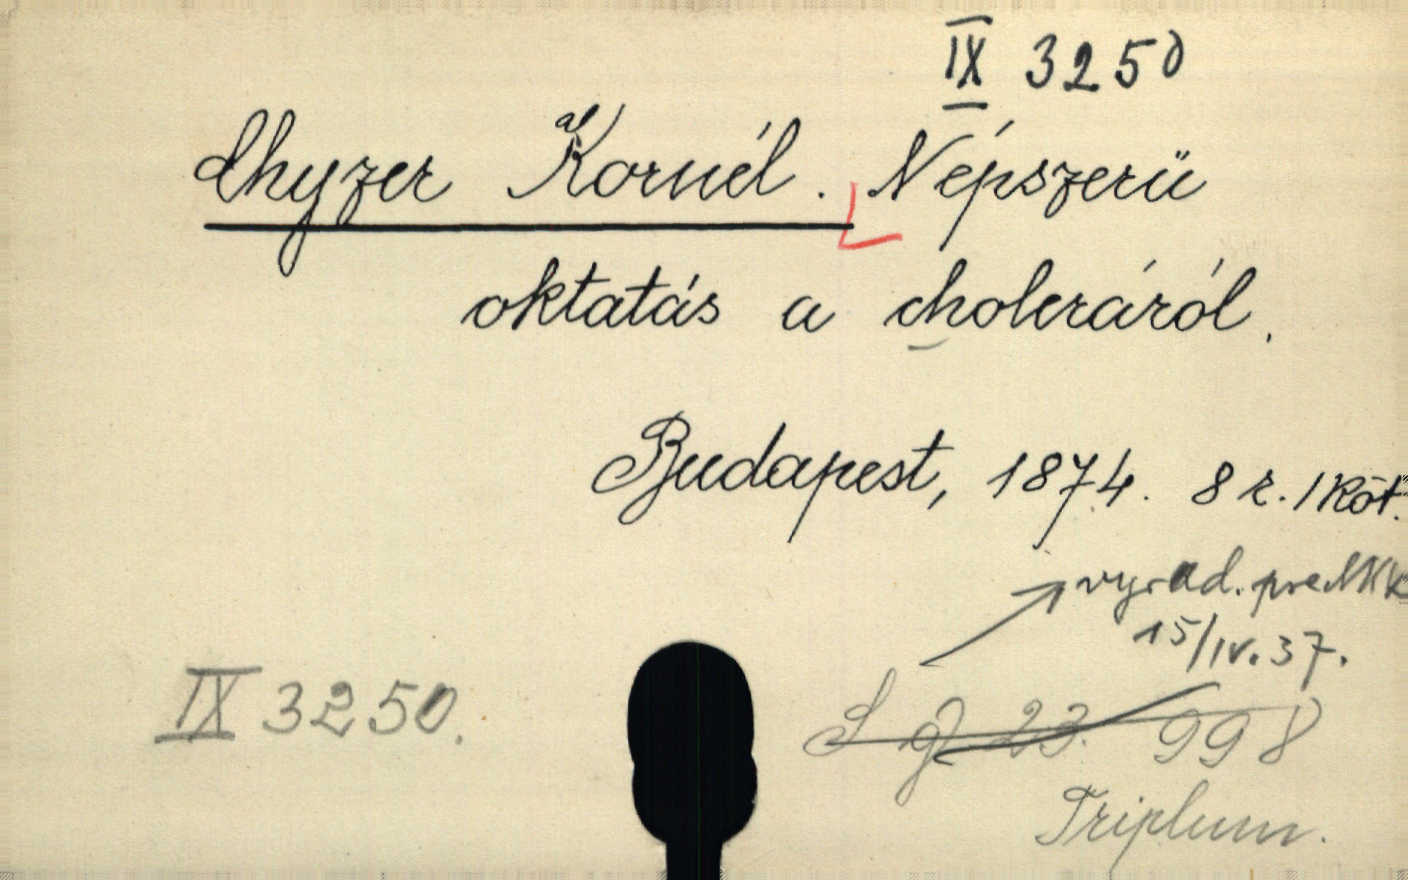 IX 3250
Chyzer Kornél. Népszerü
oktatás a choleráról.
Budapest, 1874. 8 r. 1 köt.
vyrad. pre
15/IV. 37.
IX 3250.
S g 23. 998
Triplum.